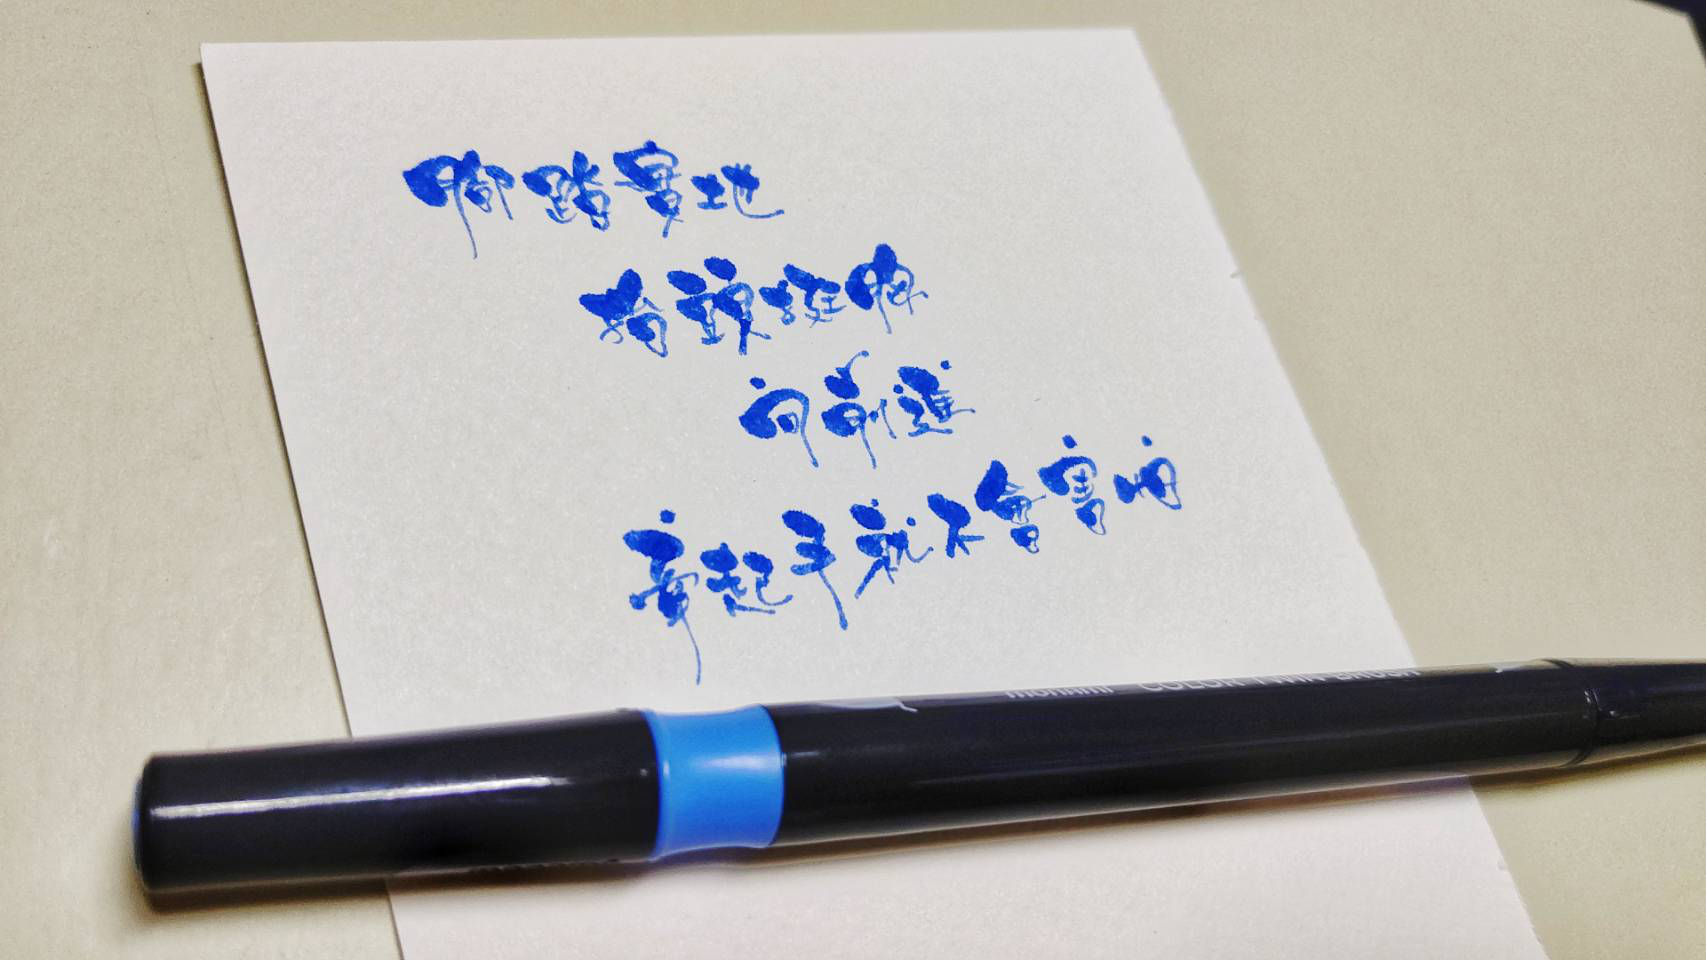 腳踏實地
抬頭挺胸
向前進
牽起手就不會害怕
monami COLOR TWIN BRUSH